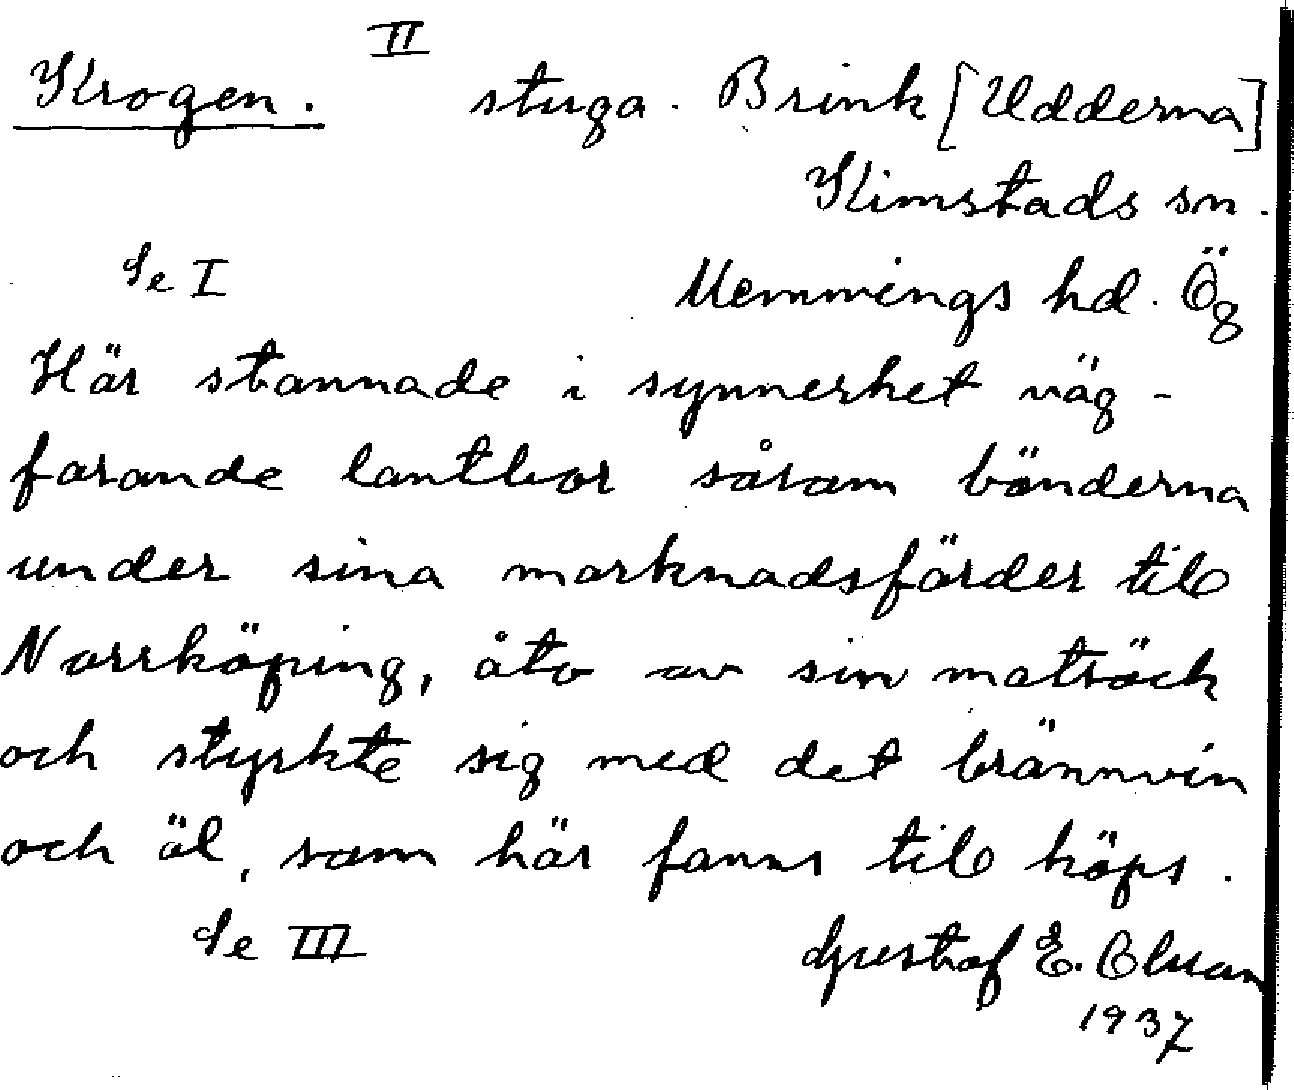 II
Krogen. stuga. Brink [Udderna]
Kimstads sn.
Se I Memmings hd. Ög
Här stannade i synnerhet väg-
farande lantbor såsom bönderna
under sina marknadsfärder till
Norrköping, åto av sin matsäck
och styrkte sig med det brännvin
och öl, som här fanns till köps.
Se III Gustaf E. Olsson
1937